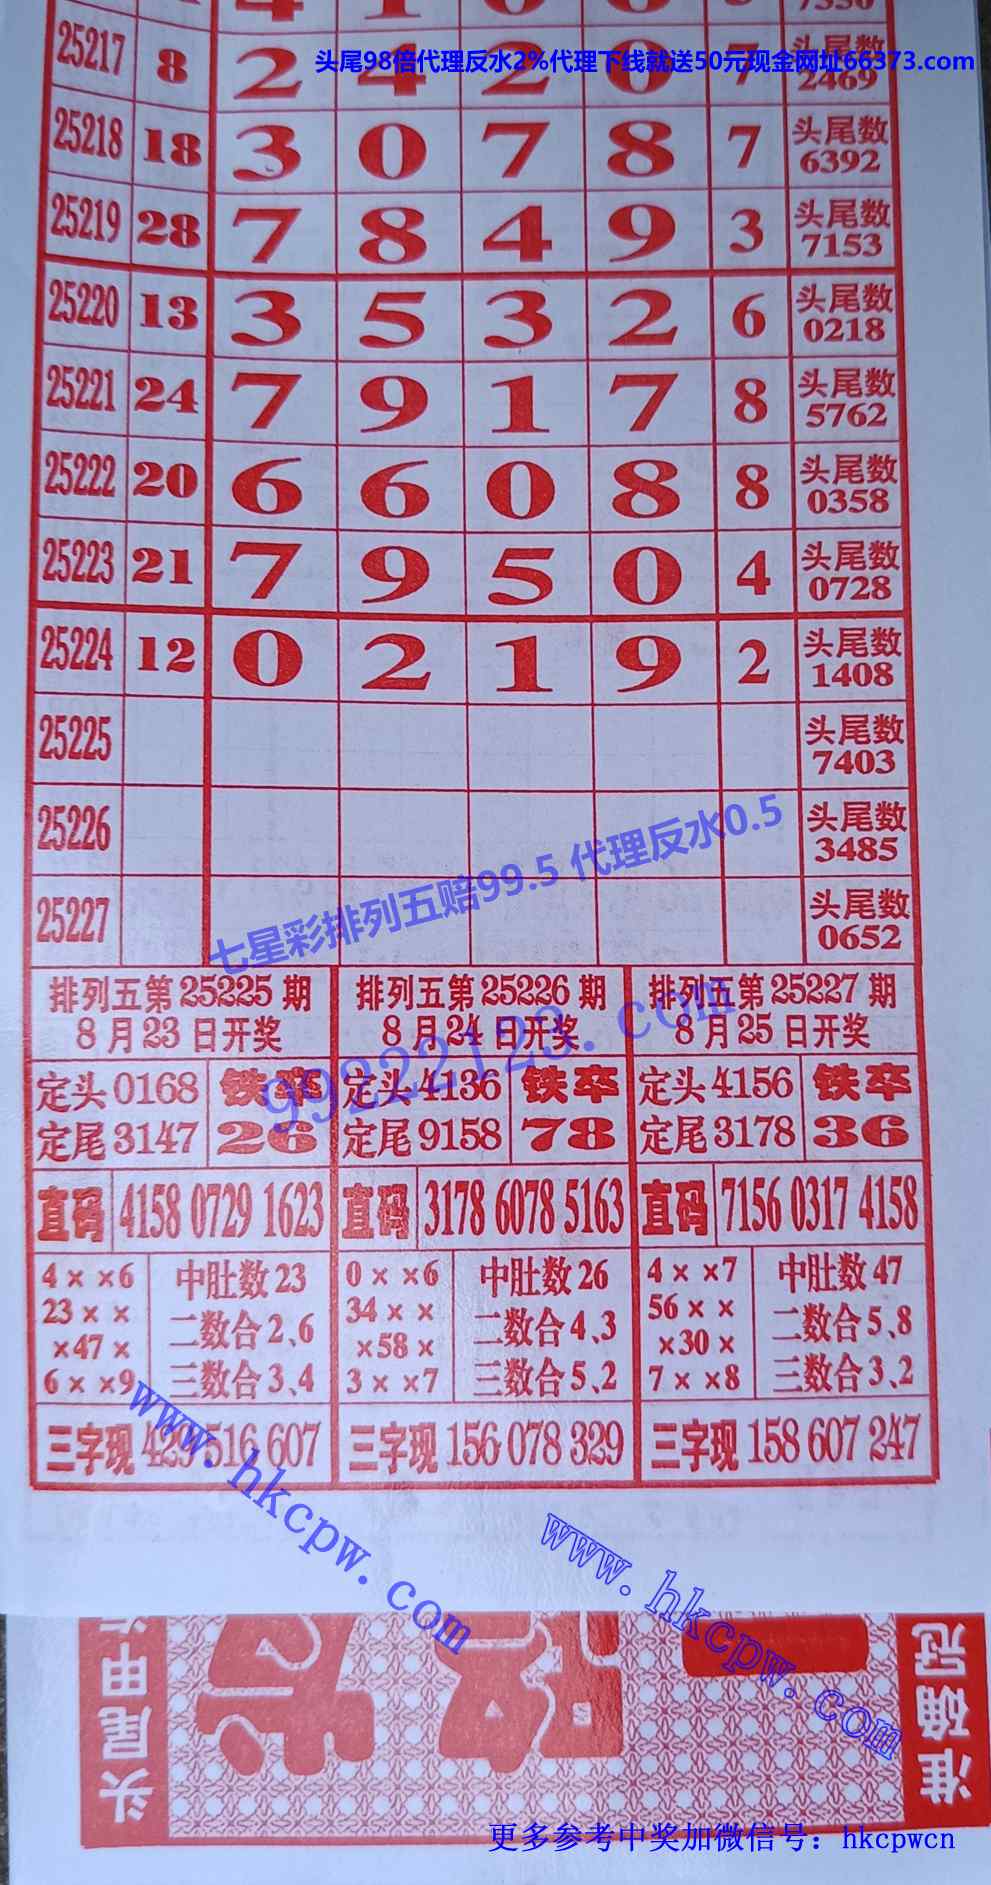 25217 8 2 4 2 0 7 头尾数 2469
头尾98倍代理反水2%代理下线就送50元现金网址66373.com
25218 18 3 0 7 8 7 头尾数 6392
25219 28 7 8 4 9 3 头尾数 7153
25220 13 3 5 3 2 6 头尾数 0218
25221 24 7 9 1 7 8 头尾数 5762
25222 20 6 6 0 8 8 头尾数 0358
25223 21 7 9 5 0 4 头尾数 0728
25224 12 0 2 1 9 2 头尾数 1408
25225 头尾数 7403
25226 头尾数 3485
25227 头尾数 0652
七星彩排列五赔99.5 代理反水0.5
99222123.com
排列五第25225期
8月23日开奖
定头0168 铁卒
定尾3147 26
直码 4158 0729 1623
4××6 中肚数23
23×× 二数合2、6
×47×
6××9 三数合3、4
三字现 429 516 607
排列五第25226期
8月24日开奖
定头4136 铁卒
定尾9158 78
直码 3178 6078 5163
0××6 中肚数26
34×× 二数合4、3
×58×
3××7 三数合5、2
三字现 156 078 329
排列五第25227期
8月25日开奖
定头4156 铁卒
定尾3178 36
直码 7156 0317 4158
4××7 中肚数47
56×× 二数合5、8
×30×
7××8 三数合3、2
三字现 158 607 247
www.hkcpw.com
www.hkcpw.com
头尾甲
准确冠
更多参考中奖加微信号：hkcpwcn